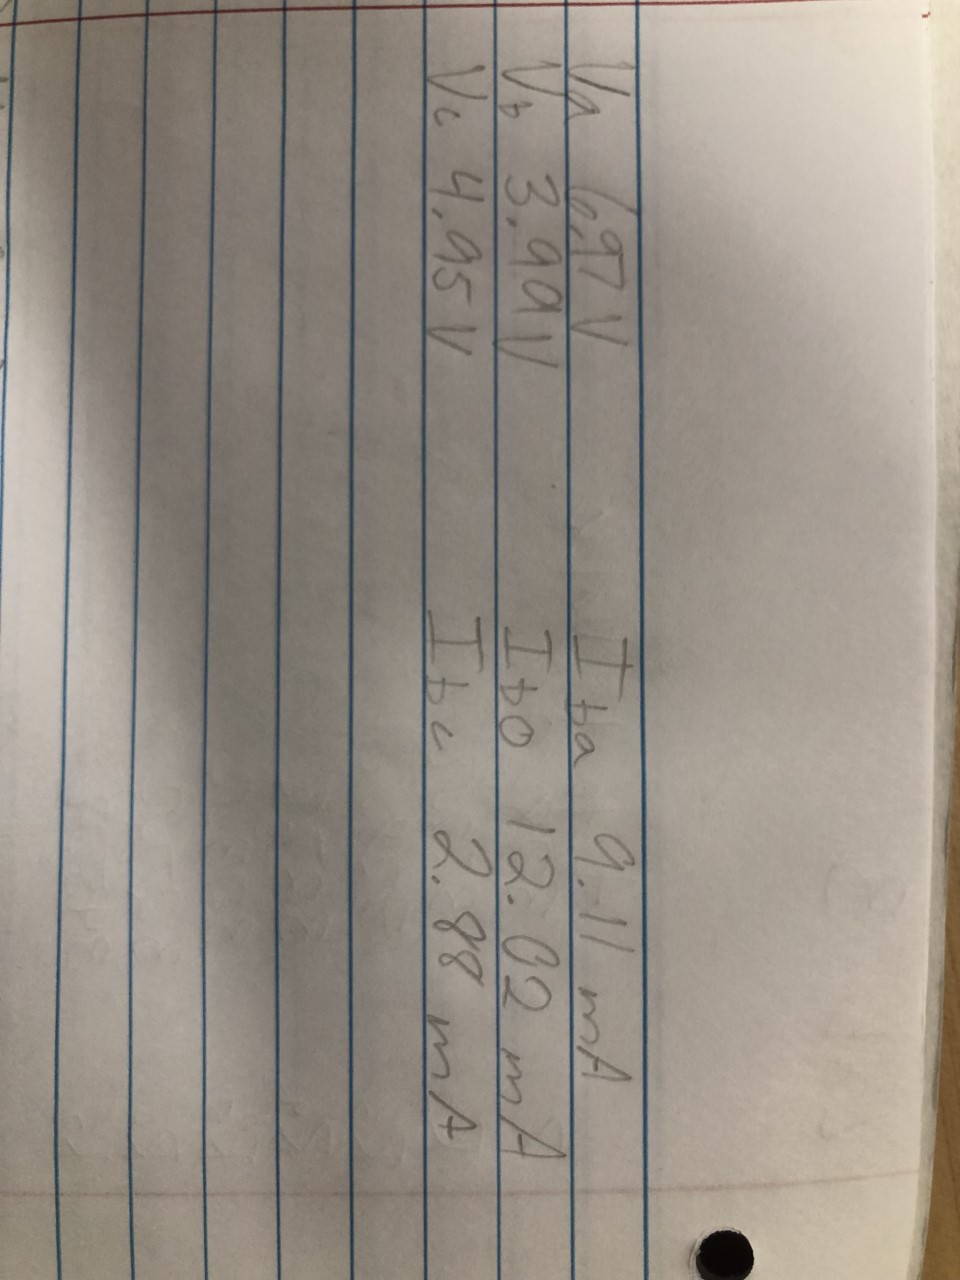 Va 6.97 V Iba 9.11 mA
Vb 3.99 V Ibo 12.02 mA
Vc 4.95 V Ibc 2.88 mA